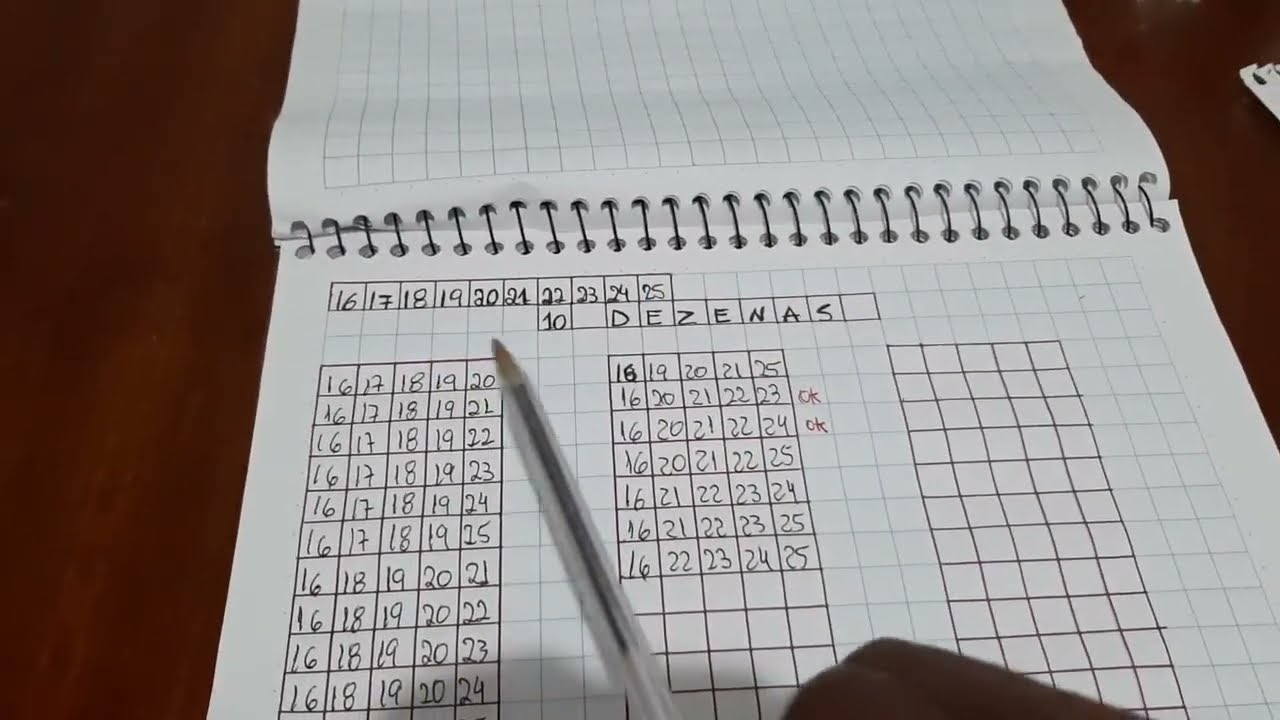 16 17 18 19 20 21 22 23 24 25
10 DEZENAS
16 17 18 19 20
16 17 18 19 21
16 17 18 19 22
16 17 18 19 23
16 17 18 19 24
16 17 18 19 25
16 18 19 20 21
16 18 19 20 22
16 18 19 20 23
16 18 19 20 24
16 19 20 21 25
16 20 21 22 23 OK
16 20 21 22 24 OK
16 20 21 22 25
16 21 22 23 24
16 21 22 23 25
16 22 23 24 25